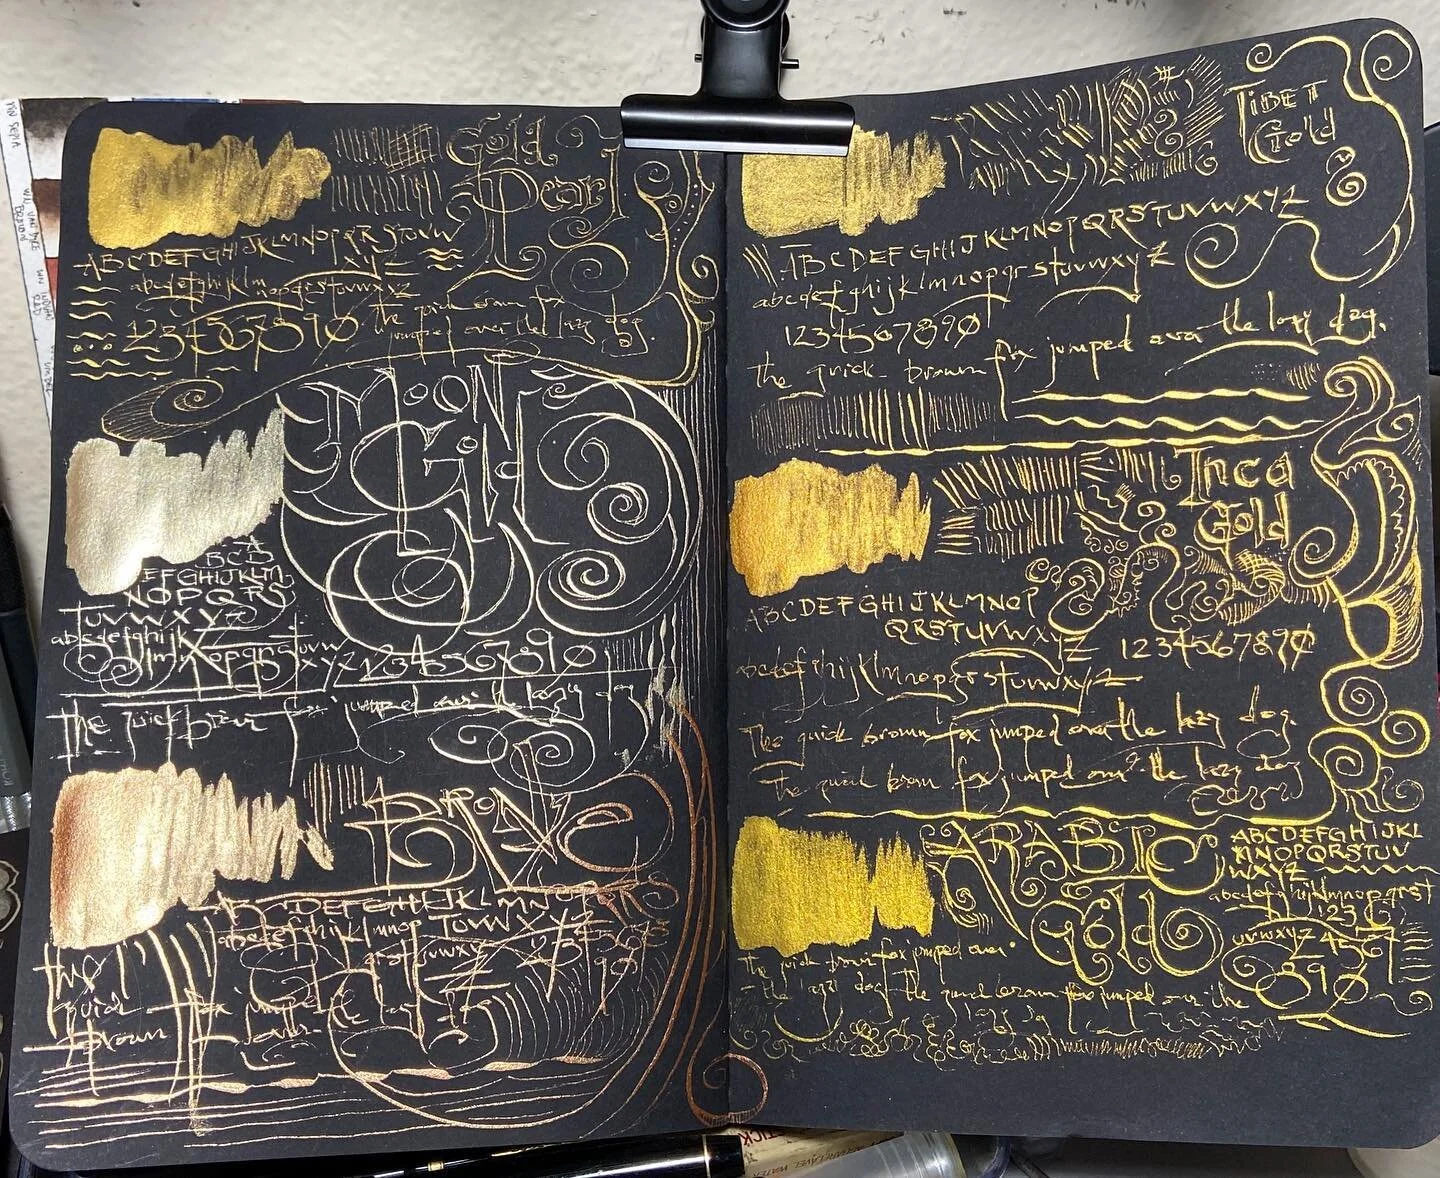 Gold
Pearl
ABCDEFGHIJKLMNOPQRSTUVW
XYZ
abcdefghijklm
nopqrstuvwxyz
1234567890 the quick brown fox
jumped over the lazy dog.
MOON
Gold
ABCD
EFGHIJKLM
NOPQRS
TUVWXYZ
abcdefghijk
lmnopqrstuvw
xyz 1234567890
the quick brown fox jumped over the lazy dog
BRONZE
ABCDEFGHIJKLMNOPQRS
abcdefghijklmnop TUVWXYZ
qrstuvwxyz
the
quick fox jumped
brown over
TIBET
Gold
ABCDEFGHIJKLMNOPQRSTUVWXYZ
abcdefghijklmnopqrstuvwxyz
1234567890
the quick brown fox jumped over the lazy dog.
Inca
Gold
ABCDEFGHIJKLMNOP
QRSTUVWXYZ 1234567890
abcdefghijklmnopqrstuvwxyz
The quick brown fox jumped over the lazy dog.
The quick brown fox jumped over the lazy dog
ARABIC
Gold
ABCDEFGHIJKL
MNOPQRSTUV
WXYZ
abcdefghijklmnopqrst
uvwxyz 123
4567
890
the quick brown fox jumped over
the lazy dog the quick brown fox jumped over the
lazy dog